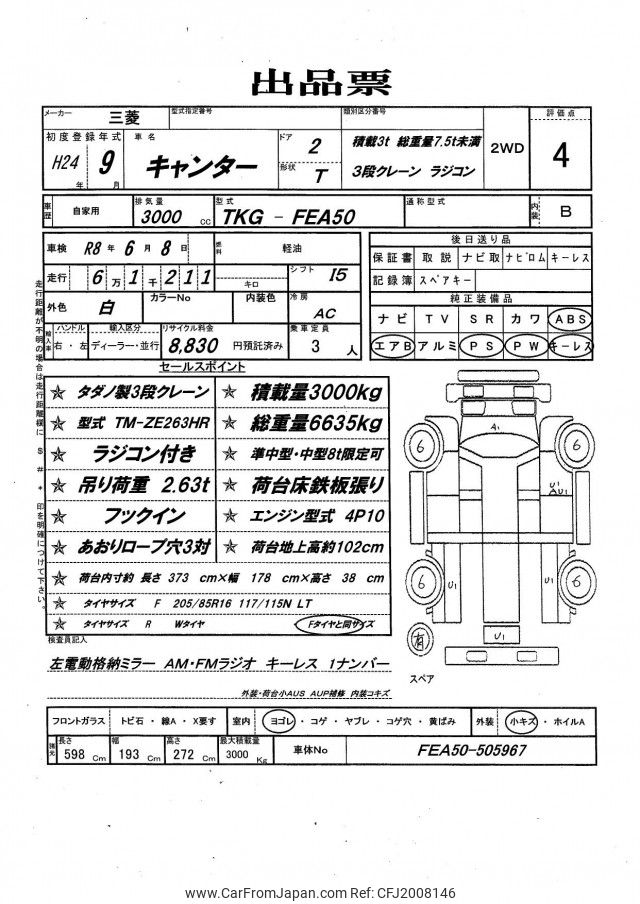 出品票
メーカー 三菱 型式指定番号 類別区分番号 評価点
初度登録年式 車名 ドア 2 積載3t 総重量7.5t未満 2WD 4
H24年 9月 キャンター 形状 T 3段クレーン ラジコン
車歴 自家用 排気量 3000 cc 型式 TKG - FEA50 通称型式 内装 B
車検 R8年 6月 8日 燃料 軽油
走行 6万1千211 キロ シフト I5
外色 白 カラーNo 内装色 冷房 AC
輸入車 ハンドル 右・左 輸入区分 ディーラー・並行 リサイクル料金 8,830 円預託済み 乗車定員 3 人
後日送り品
保証書 取説 ナビ取 ナビロム キーレス
記録簿 スペアキー
純正装備品
ナビ TV SR カワ ABS
エアB アルミ PS PW キーレス
セールスポイント
☆ タダノ製3段クレーン ☆ 積載量3000kg
☆ 型式 TM-ZE263HR ☆ 総重量6635kg
☆ ラジコン付き ☆ 準中型・中型8t限定可
☆ 吊り荷重 2.63t ☆ 荷台床鉄板張り
☆ フックイン ☆ エンジン型式 4P10
☆ あおりロープ穴3対 ☆ 荷台地上高約102cm
☆ 荷台内寸約 長さ 373 cm×幅 178 cm×高さ 38 cm
☆ タイヤサイズ F 205/85R16 117/115N LT
☆ タイヤサイズ R Wタイヤ Fタイヤと同サイズ
走行距離が不明の場合は走行距離欄に $ # * 印を明確につけて下さい。
A1
6 6
U1
U1
6 U1 U1 6
U1
有
スペア
検査員記入
左電動格納ミラー AM・FMラジオ キーレス 1ナンバー
外装・荷台小AUS AUP補修 内装コキズ
フロントガラス トビ石・線A・X要す 室内 ヨゴレ・コゲ・ヤブレ・コゲ穴・黄ばみ 外装 小キズ・ホイルA
諸元 長さ 598 Cm 幅 193 cm 高さ 272 Cm 最大積載量 3000 Kg 車体No FEA50-505967
www.CarFromJapan.com Ref: CFJ2008146